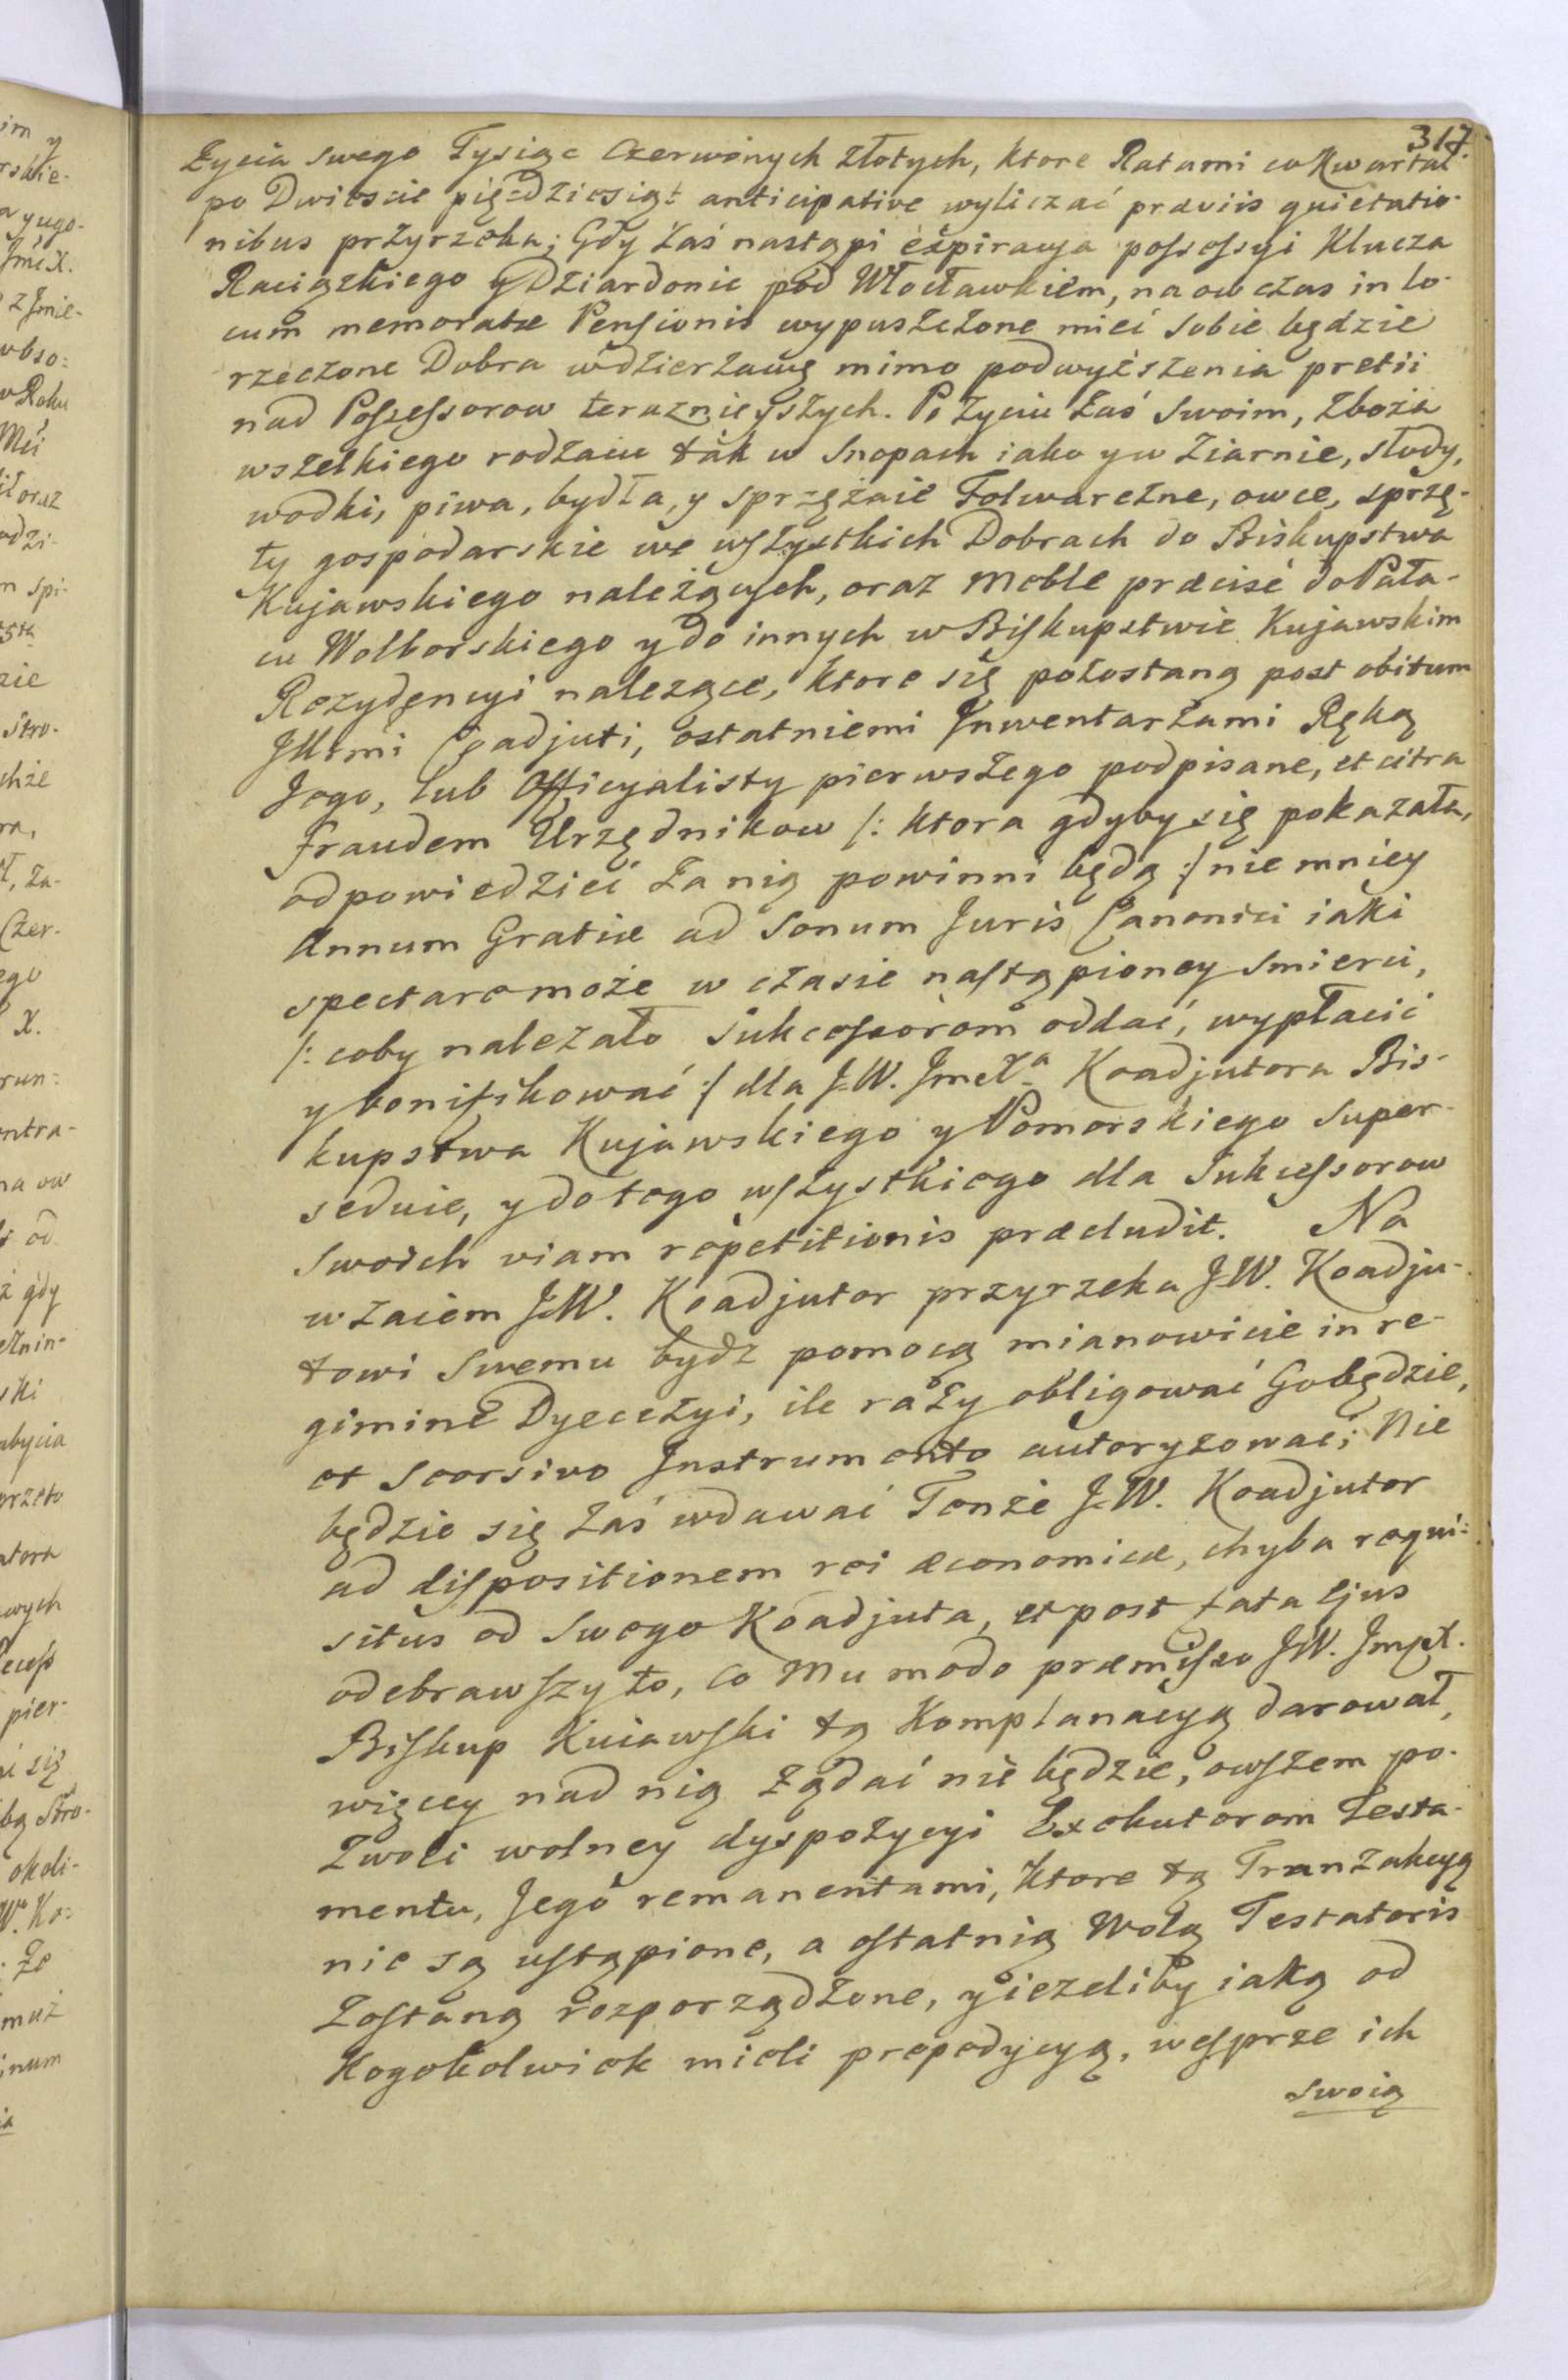 317.
Zycia swego Tysiąc Czerwonych złotych, ktore Ratami co Kwartał
po Dwiescie pięcdziesiąt anticipative wyliczać præviis quietatio-
nibus przyrzeka; Gdy zaś nastąpi expiracya possessyi Klucza
Raciązkiego y Dziardonic pod Włocławkiem, naowczas in lo-
cum memoratæ Pensionis wypuszczone mieć sobie będzie
rzeczone Dobra w dzierzawę mimo podwyższenia pretii
nad Possessorow teraznieyszych. Po życiu zaś swoim, zboża
wszelkiego rodzaiu tak w Snopach iako y w ziarnie, słody,
wodki, piwa, bydła, y sprzężaie Folwarczne, owce, sprzę-
ty gospodarskie we wszystkich Dobrach do Biskupstwa
Kujawskiego należących, oraz meble præcise do Pała-
cu Wolborskiego y do innych w Biskupstwie Kujawskim
Rezydencyi nalezące, ktore się pozostaną post obitum
Jllmi Coadjuti, ostatniemi Jnwentarzami Ręką
Jego, lub Officyalisty pierwszego podpisane, et citra
fraudem Urzędnikow /: ktora gdyby się pokazała,
odpowiedzieć za nią powinni będą :/ nie mniey
Annum Gratiæ ad Sonum Juris Canonici iaki
spectare może w czasie nastąpioney smierci,
/: coby nalezało Sukcessorom oddać, wypłacić
y bonifikować :/ dla J.W. JmcXa Koadjutora Bis-
kupstwa Kujawskiego y Pomorskiego super-
seduie, y do tego wszystkiego dla Sukcessorow
swoich viam repetitionis præcludit. Na
wzaiem J.W. Koadjutor przyrzeka J.W. Koadju-
towi Swemu bydz pomocą mianowicie in re-
gimine Dyecezyi, ile razy obligować Go będzie,
et seorsivo Jnstrumento autoryzować; Nie
będzie się zaś wdawać Tenże J.W. Koadjutor
ad dispositionem rei œconomicæ, chyba requi-
situs od Swego Koadjuta, et post fata Ejus
odebrawszy to, co Mu modo præmisso J.W. JmX.
Biskup Kuiawski tą Komplanacyą darował,
więcey nad nią żądać nie będzie, owszem po-
zwoli wolney dyspozycyi Exekutorom Testa-
mentu, Jego remanentami, ktore tą Tranzakcyą
nie są ustąpione, a ostatnią Wolą Testatoris
zostaną rozporządzone, y iezeliby iaką od
Kogokolwiek mieli prepedycyą, wesprze ich
swoią